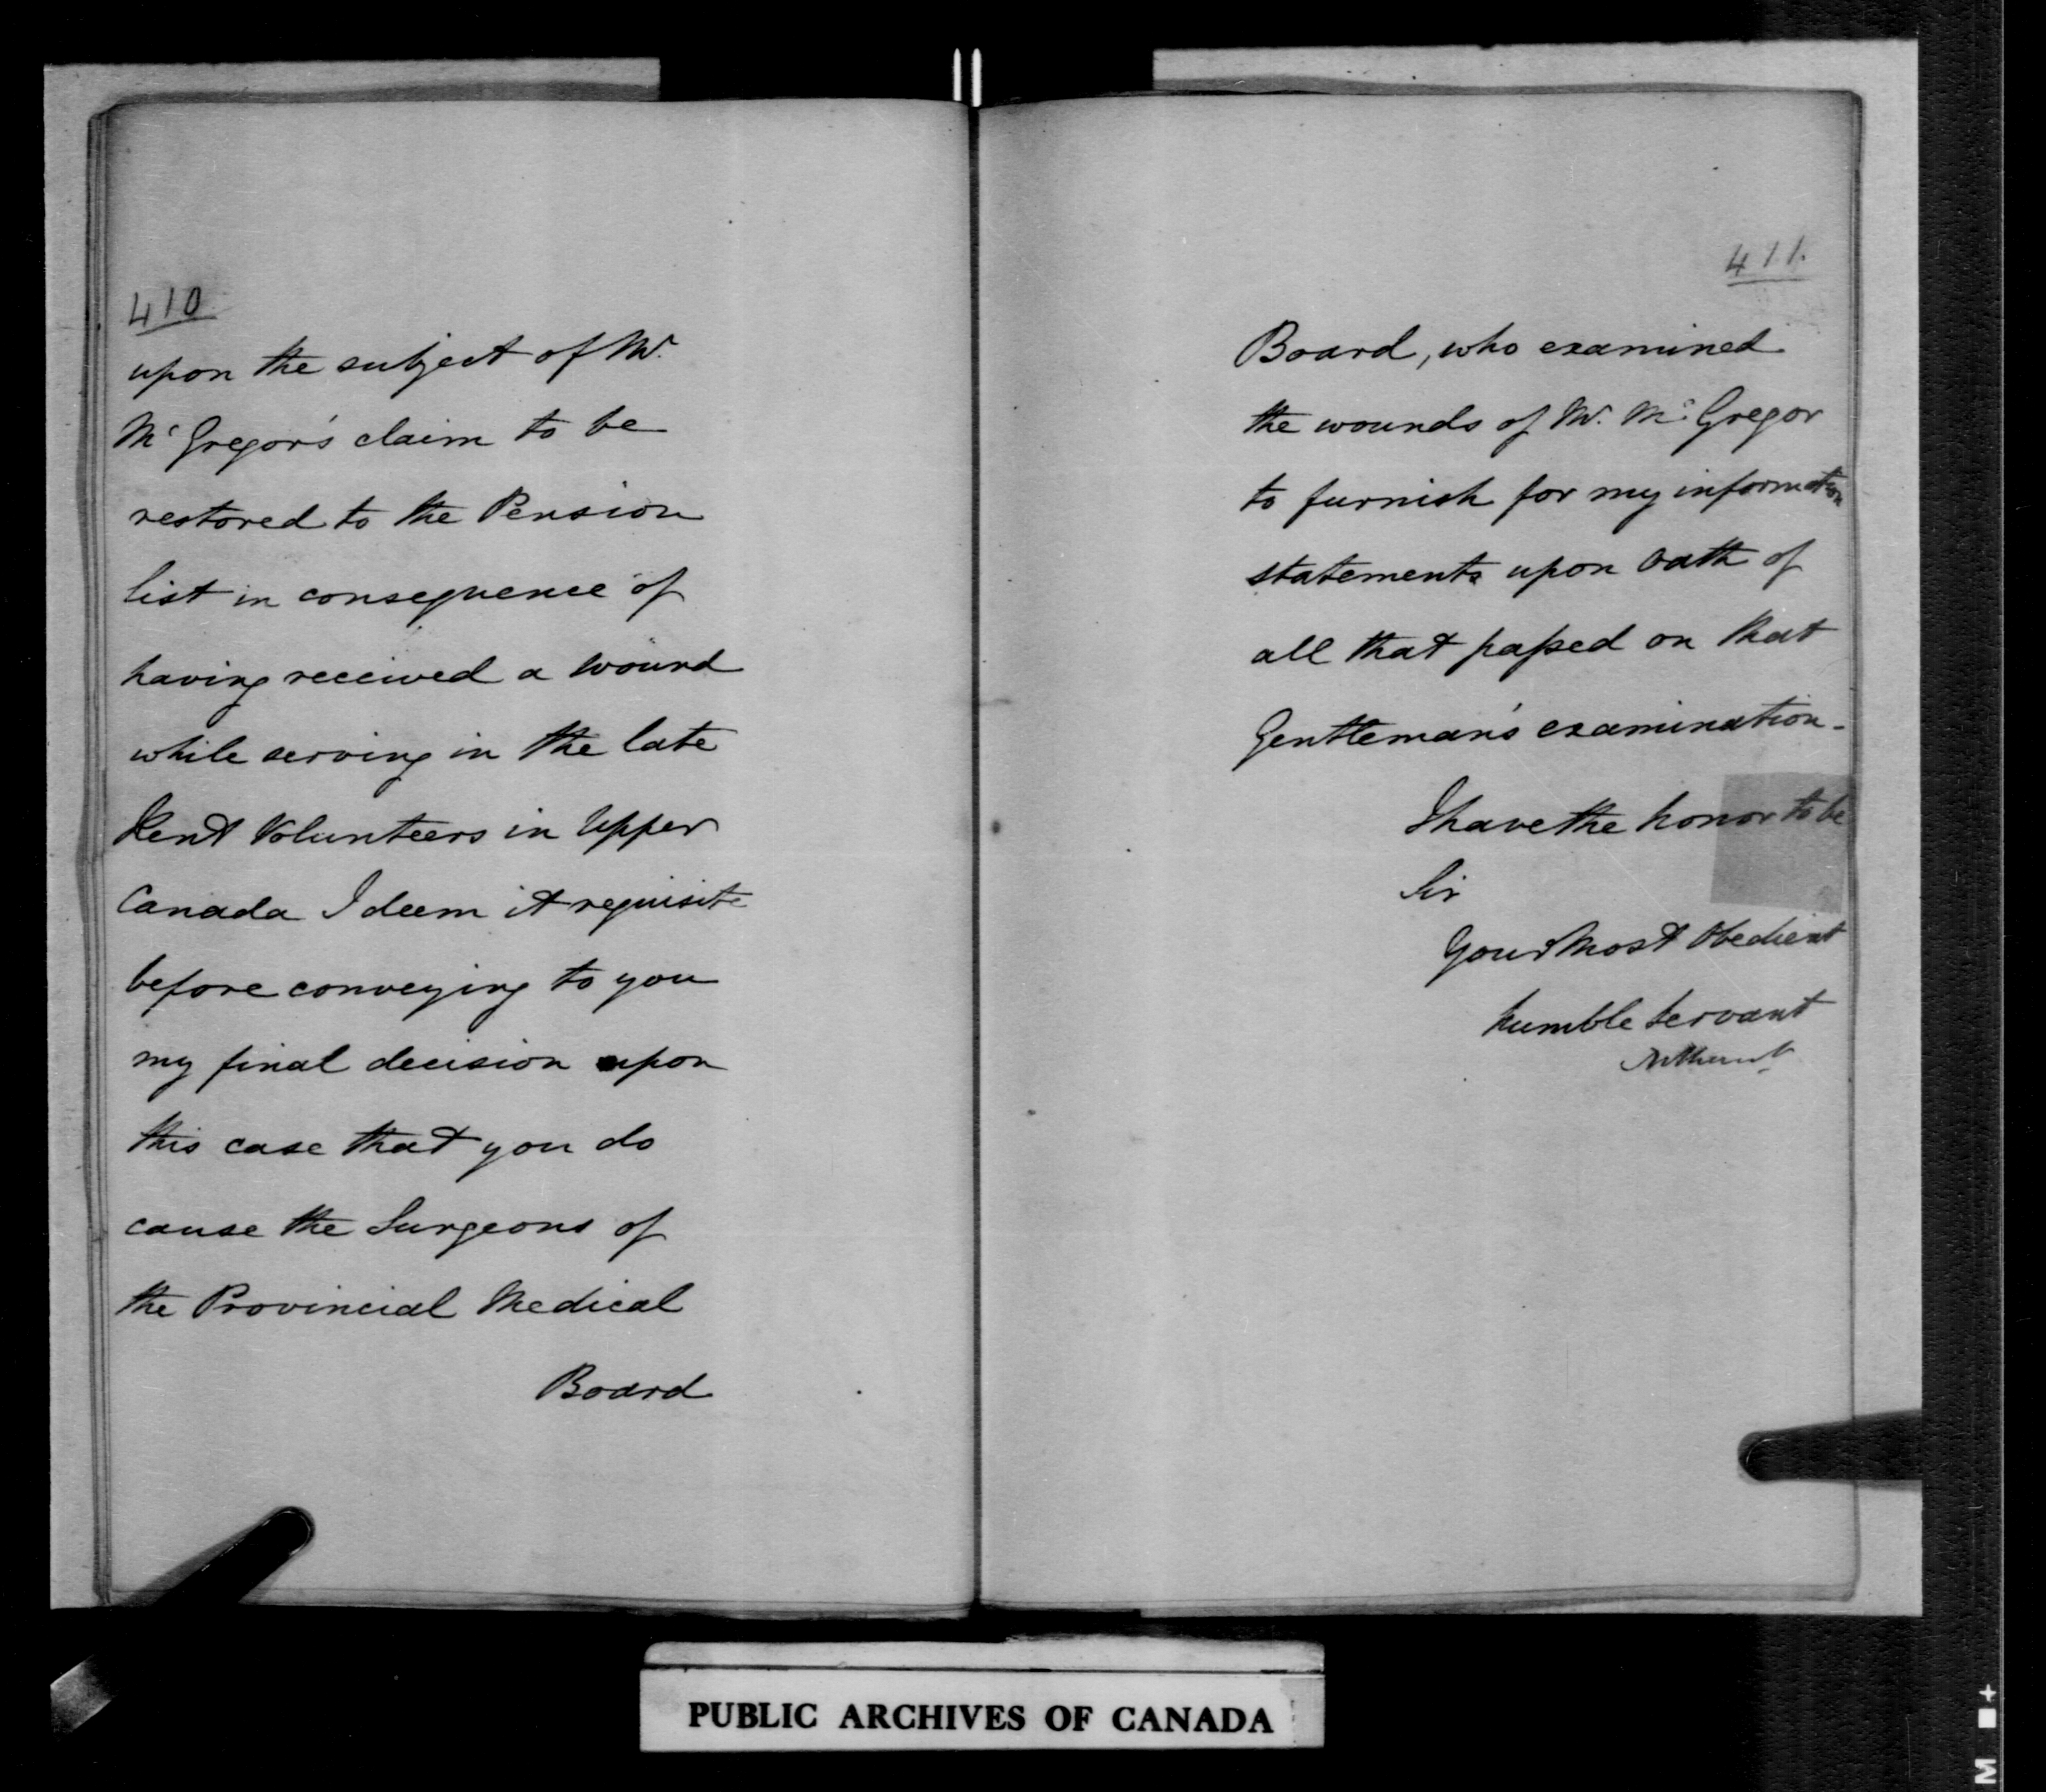 410
upon the subject of Mr.
McGregor's claim to be
restored to the Pension
list in consequence of
having received a wound
while serving in the late
Kent Volunteers in Upper
Canada I deem it requisite
before conveying to you
my final decision upon
this case that you do
cause the Surgeons of
the Provincial Medical
Board
411.
Board, who examined
the wounds of Mr. McGregor
to furnish for my information
statements upon Oath of
all that paſsed on that
Gentleman's examination -
I have the honor to be
Sir
Your Most Obedient
humble Servant
Bathurst
PUBLIC ARCHIVES OF CANADA
M